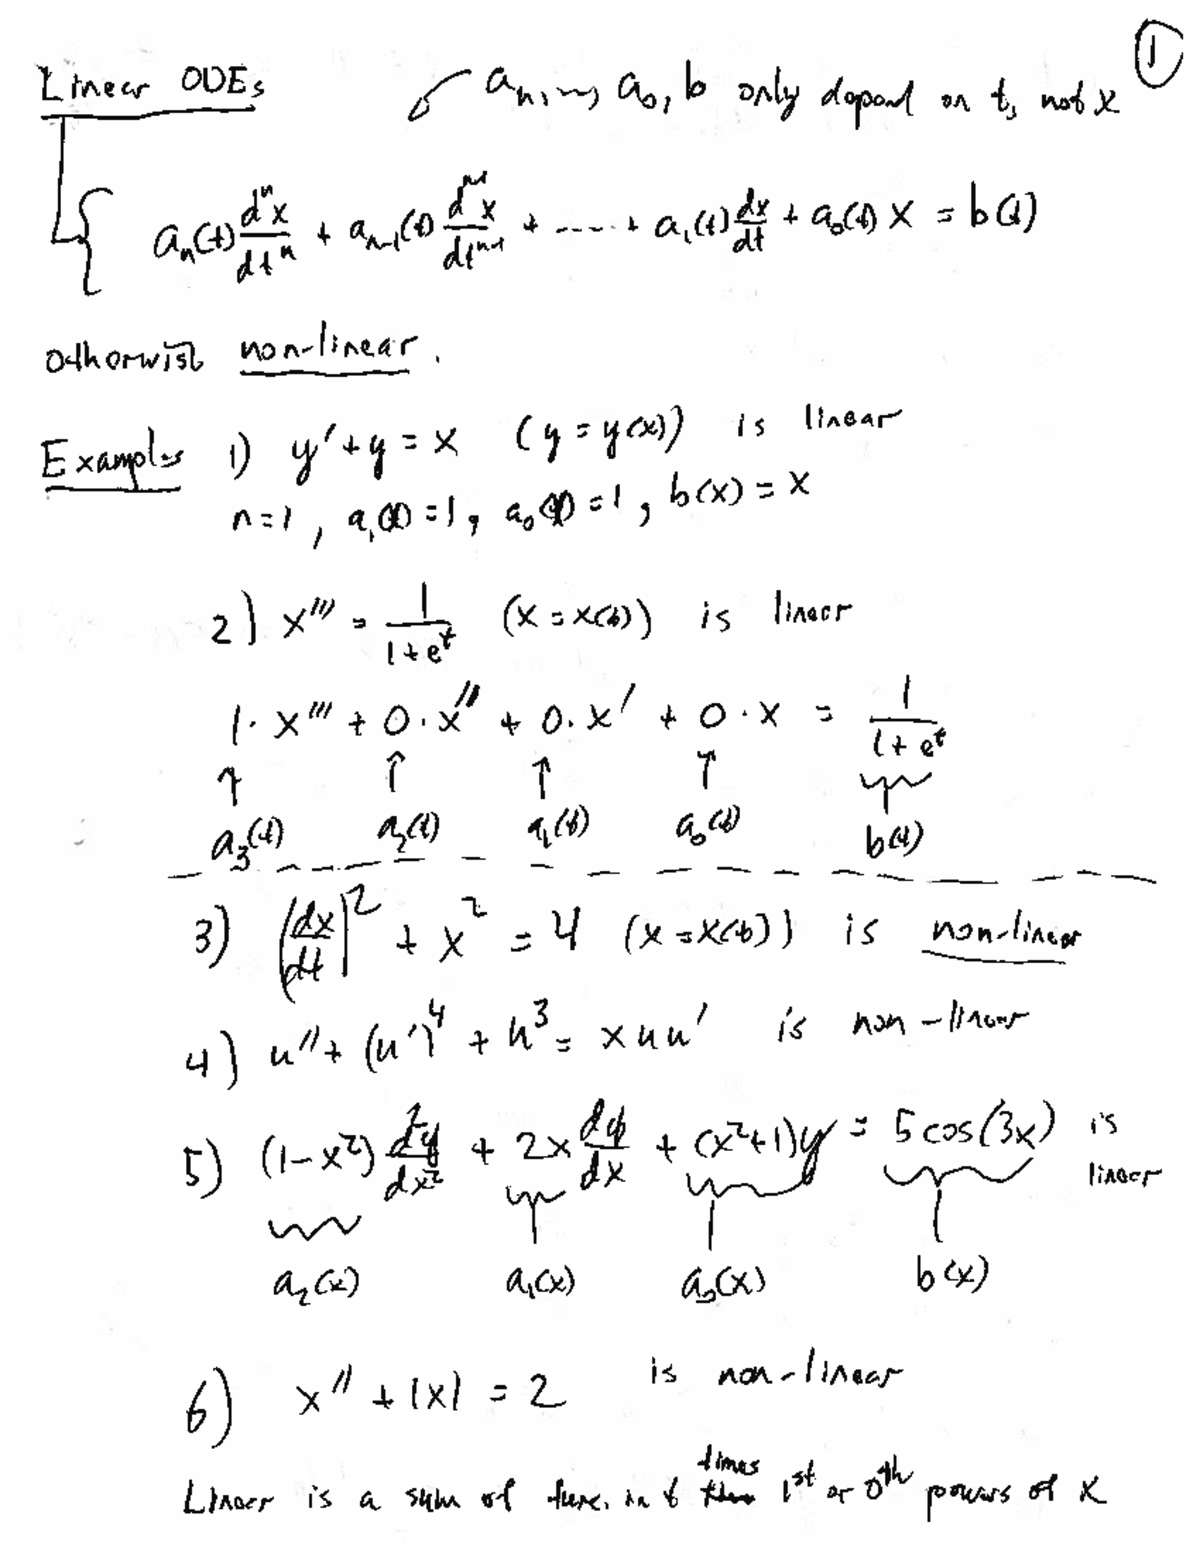 1
Linear ODEs
a_n, ..., a_0, b only depend on t, not x
a_n(t) d^n x/dt^n + a_{n-1}(t) d^{n-1} x/dt^{n-1} + ..... + a_1(t) dx/dt + a_0(t) x = b(t)
otherwise non-linear.
Examples 1) y' + y = x (y = y(x)) is linear
n=1, a_1(x) = 1, a_0(x) = 1, b(x) = x
2) x''' = 1/(1+e^t) (x = x(t)) is linear
1·x''' + 0·x'' + 0·x' + 0·x = 1/(1+e^t)
↑ ↑ ↑ ↑
a_3(t) a_2(t) a_1(t) a_0(t) b(t)
3) (dx/dt)^2 + x^2 = 4 (x = x(t)) is non-linear
4) u'' + (u')^4 + u^3 = x u u' is non-linear
5) (1-x^2) d^2y/dx^2 + 2x dy/dx + (x^2+1)y = 5 cos(3x) is linear
a_2(x) a_1(x) a_0(x) b(x)
6) x'' + |x| = 2 is non-linear
Linear is a sum of func. in t times 1st or 0th powers of x